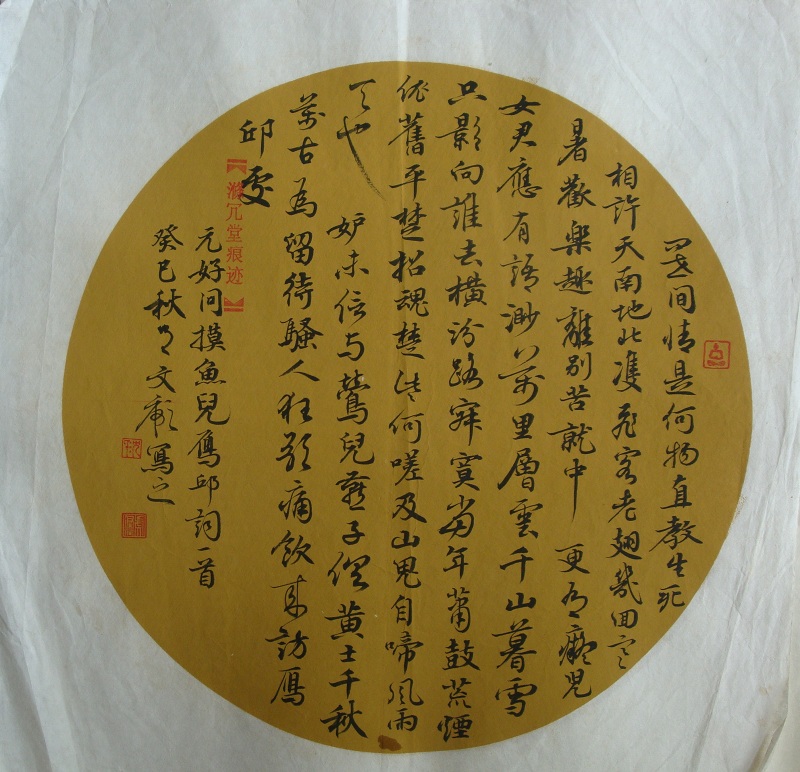 間情是何物直教生死
相許天南地北雙飛客老翅幾回寒
暑歡樂趣離別苦就中更有癡兒
女君應有語渺萬里層雲千山暮雪
只影向誰去橫汾路寂寞當年蕭鼓荒煙
依舊平楚招魂楚些何嗟及山鬼自啼風雨
天也妒未信與鶯兒燕子俱黃土千秋
萬古為留待騷人狂歌痛飲來訪鴈
邱處
元好问摸魚兒鴈邱詞一首
癸巳秋月文寫之
冗堂痕迹